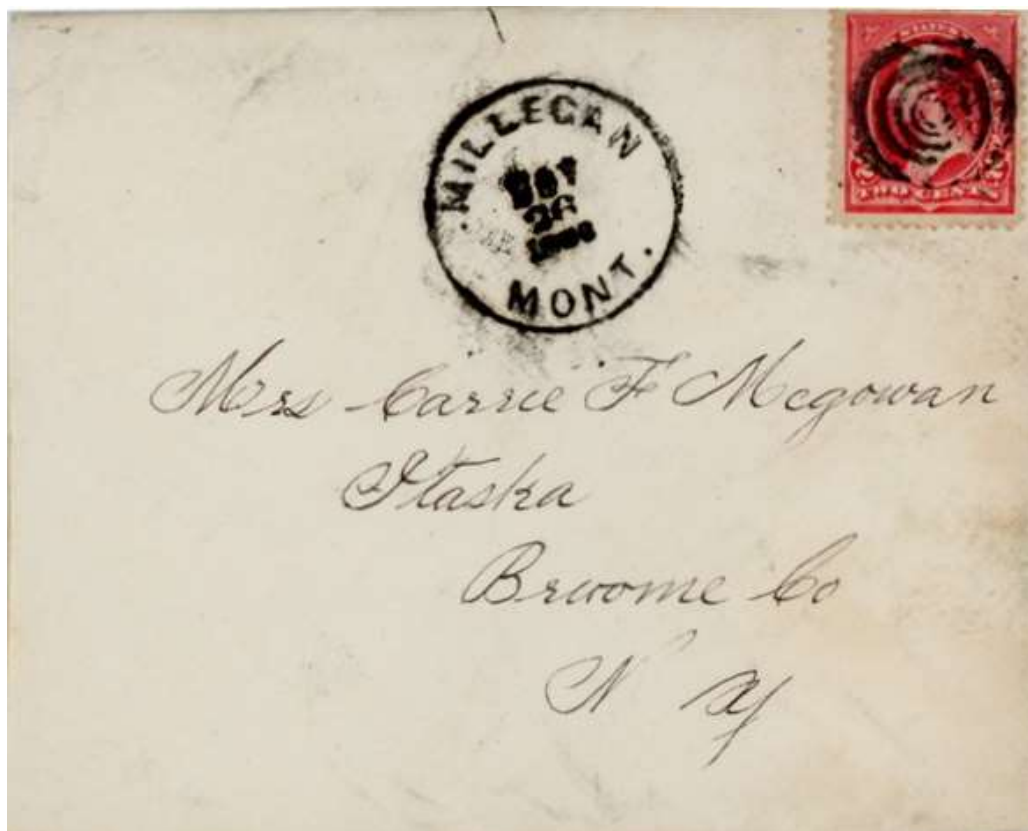 MILLEGAN
NOV
26
MONT.
TWO CENTS
Mrs Carrie F Mcgowan
Itaska
Broome Co
N Y